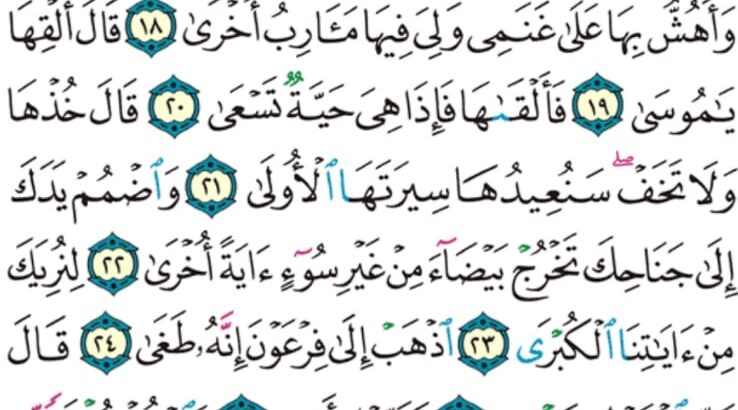 وَأَهُشُّ بِهَا عَلَىٰ غَنَمِى وَلِىَ فِيهَا مَـَٔارِبُ أُخْرَىٰ ١٨ قَالَ أَلْقِهَا
يَـٰمُوسَىٰ ١٩ فَأَلْقَىٰهَا فَإِذَا هِىَ حَيَّةٌ تَسْعَىٰ ٢٠ قَالَ خُذْهَا
وَلَا تَخَفْ ۖ سَنُعِيدُهَا سِيرَتَهَا ٱلْأُولَىٰ ٢١ وَٱضْمُمْ يَدَكَ
إِلَىٰ جَنَاحِكَ تَخْرُجْ بَيْضَآءَ مِنْ غَيْرِ سُوٓءٍ ءَايَةً أُخْرَىٰ ٢٢ لِنُرِيَكَ
مِنْ ءَايَـٰتِنَا ٱلْكُبْرَى ٢٣ ٱذْهَبْ إِلَىٰ فِرْعَوْنَ إِنَّهُۥ طَغَىٰ ٢٤ قَالَ